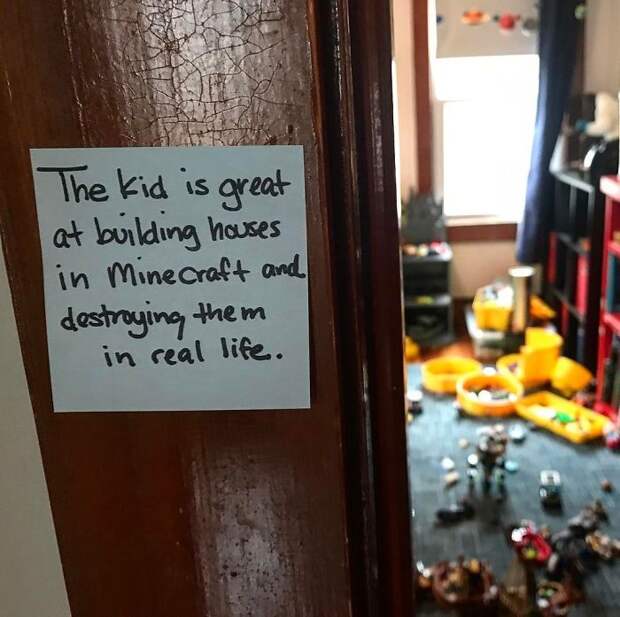 The kid is great
at building houses
in Minecraft and
destroying them
in real life.